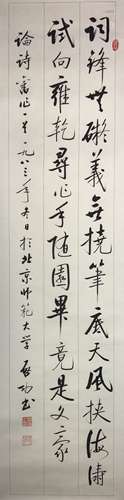 词锋无碍义无挠笔底天风挟海涛
试向雍乾寻作手随园毕竟是文豪
論诗旧作一首一九八三年冬日於北京师范大学 启功书